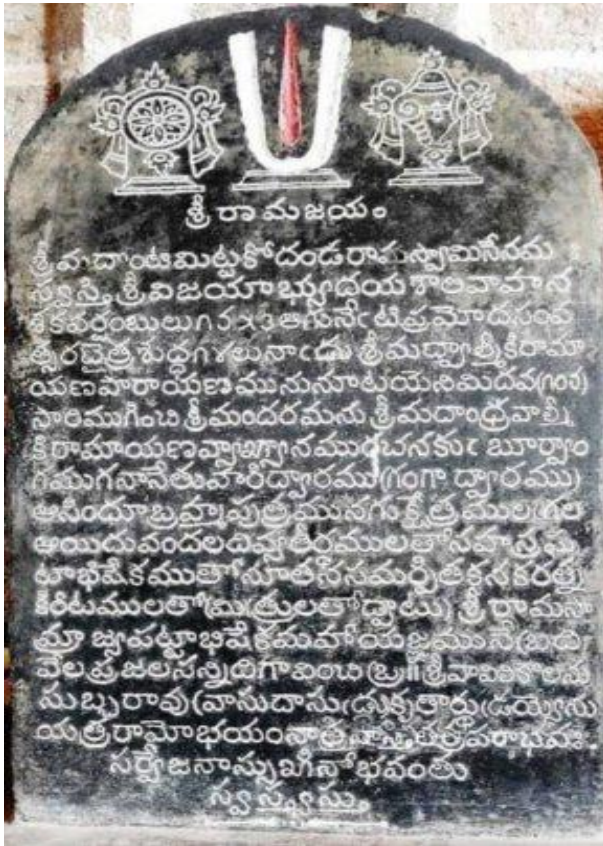 శ్రీ రామజయం
శ్రీమదొంటిమిట్టకోదండరామస్వామినేనమః
స్వస్తి శ్రీవిజయాభ్యుదయశాలివాహన
శకవర్షంబులు అగునేఁటిప్రమోదసంవ
త్సరచైత్రశుద్ధ లునాఁడు శ్రీమద్వాల్మీకిరామా
యణపారాయణమునునూటయెనిమిదవ
సారిముగించి శ్రీమందరమను శ్రీమదాంధ్రవాల్మీ
కిరామాయణవ్యాఖ్యానము బూర్వం
గంగా ద్వారము)
ఆసింధూబ్రహ్మపుత్రమునగు
అయిదువందలదివ్యతీర్థములతోసహస్రఘ
టాభిషేకముతోనూతనసమర్పితకనకరత్న
కిరీటములతో(మిత్రులతోడ్పాటు) శ్రీరామసా
మ్రాజ్యపట్టాభిషేకమహాయజ్ఞము
వేలప్రజలసన్నిధిగావించి శ్రీవావిలికొలను
సుబ్బరావు(వాసుదాసుఁడుకృతార్థుఁడయ్యెను
యత్రరామోభయంనాత్ర పరాభవః
సర్వేజనాస్సుఖినోభవంతు
స్వస్త్యస్తు